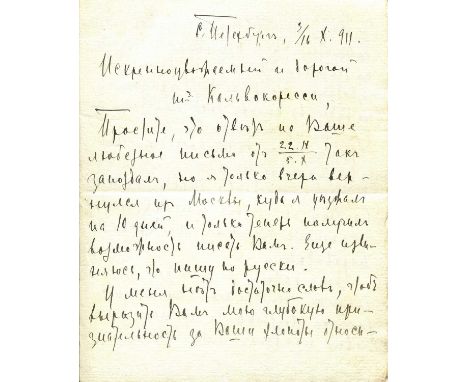 С. Петербургъ, 3/16 X. 911.
Искренноуважаемый и дорогой
mr Кальвокоресси,
Простите, что отвѣтъ на Ваше
любезное письмо отъ 22.IX/5.X такъ
запоздалъ, но я только вчера вер-
нулся изъ Москвы, куда я уѣзжалъ
на 10 дней, и только теперь получилъ
возможность писать Вамъ. Еще изви-
няюсь, что пишу по русски.
У меня нѣтъ достаточно словъ, чтобъ
выразить Вамъ мою глубокую при-
знательность за Ваши хлопоты относи-